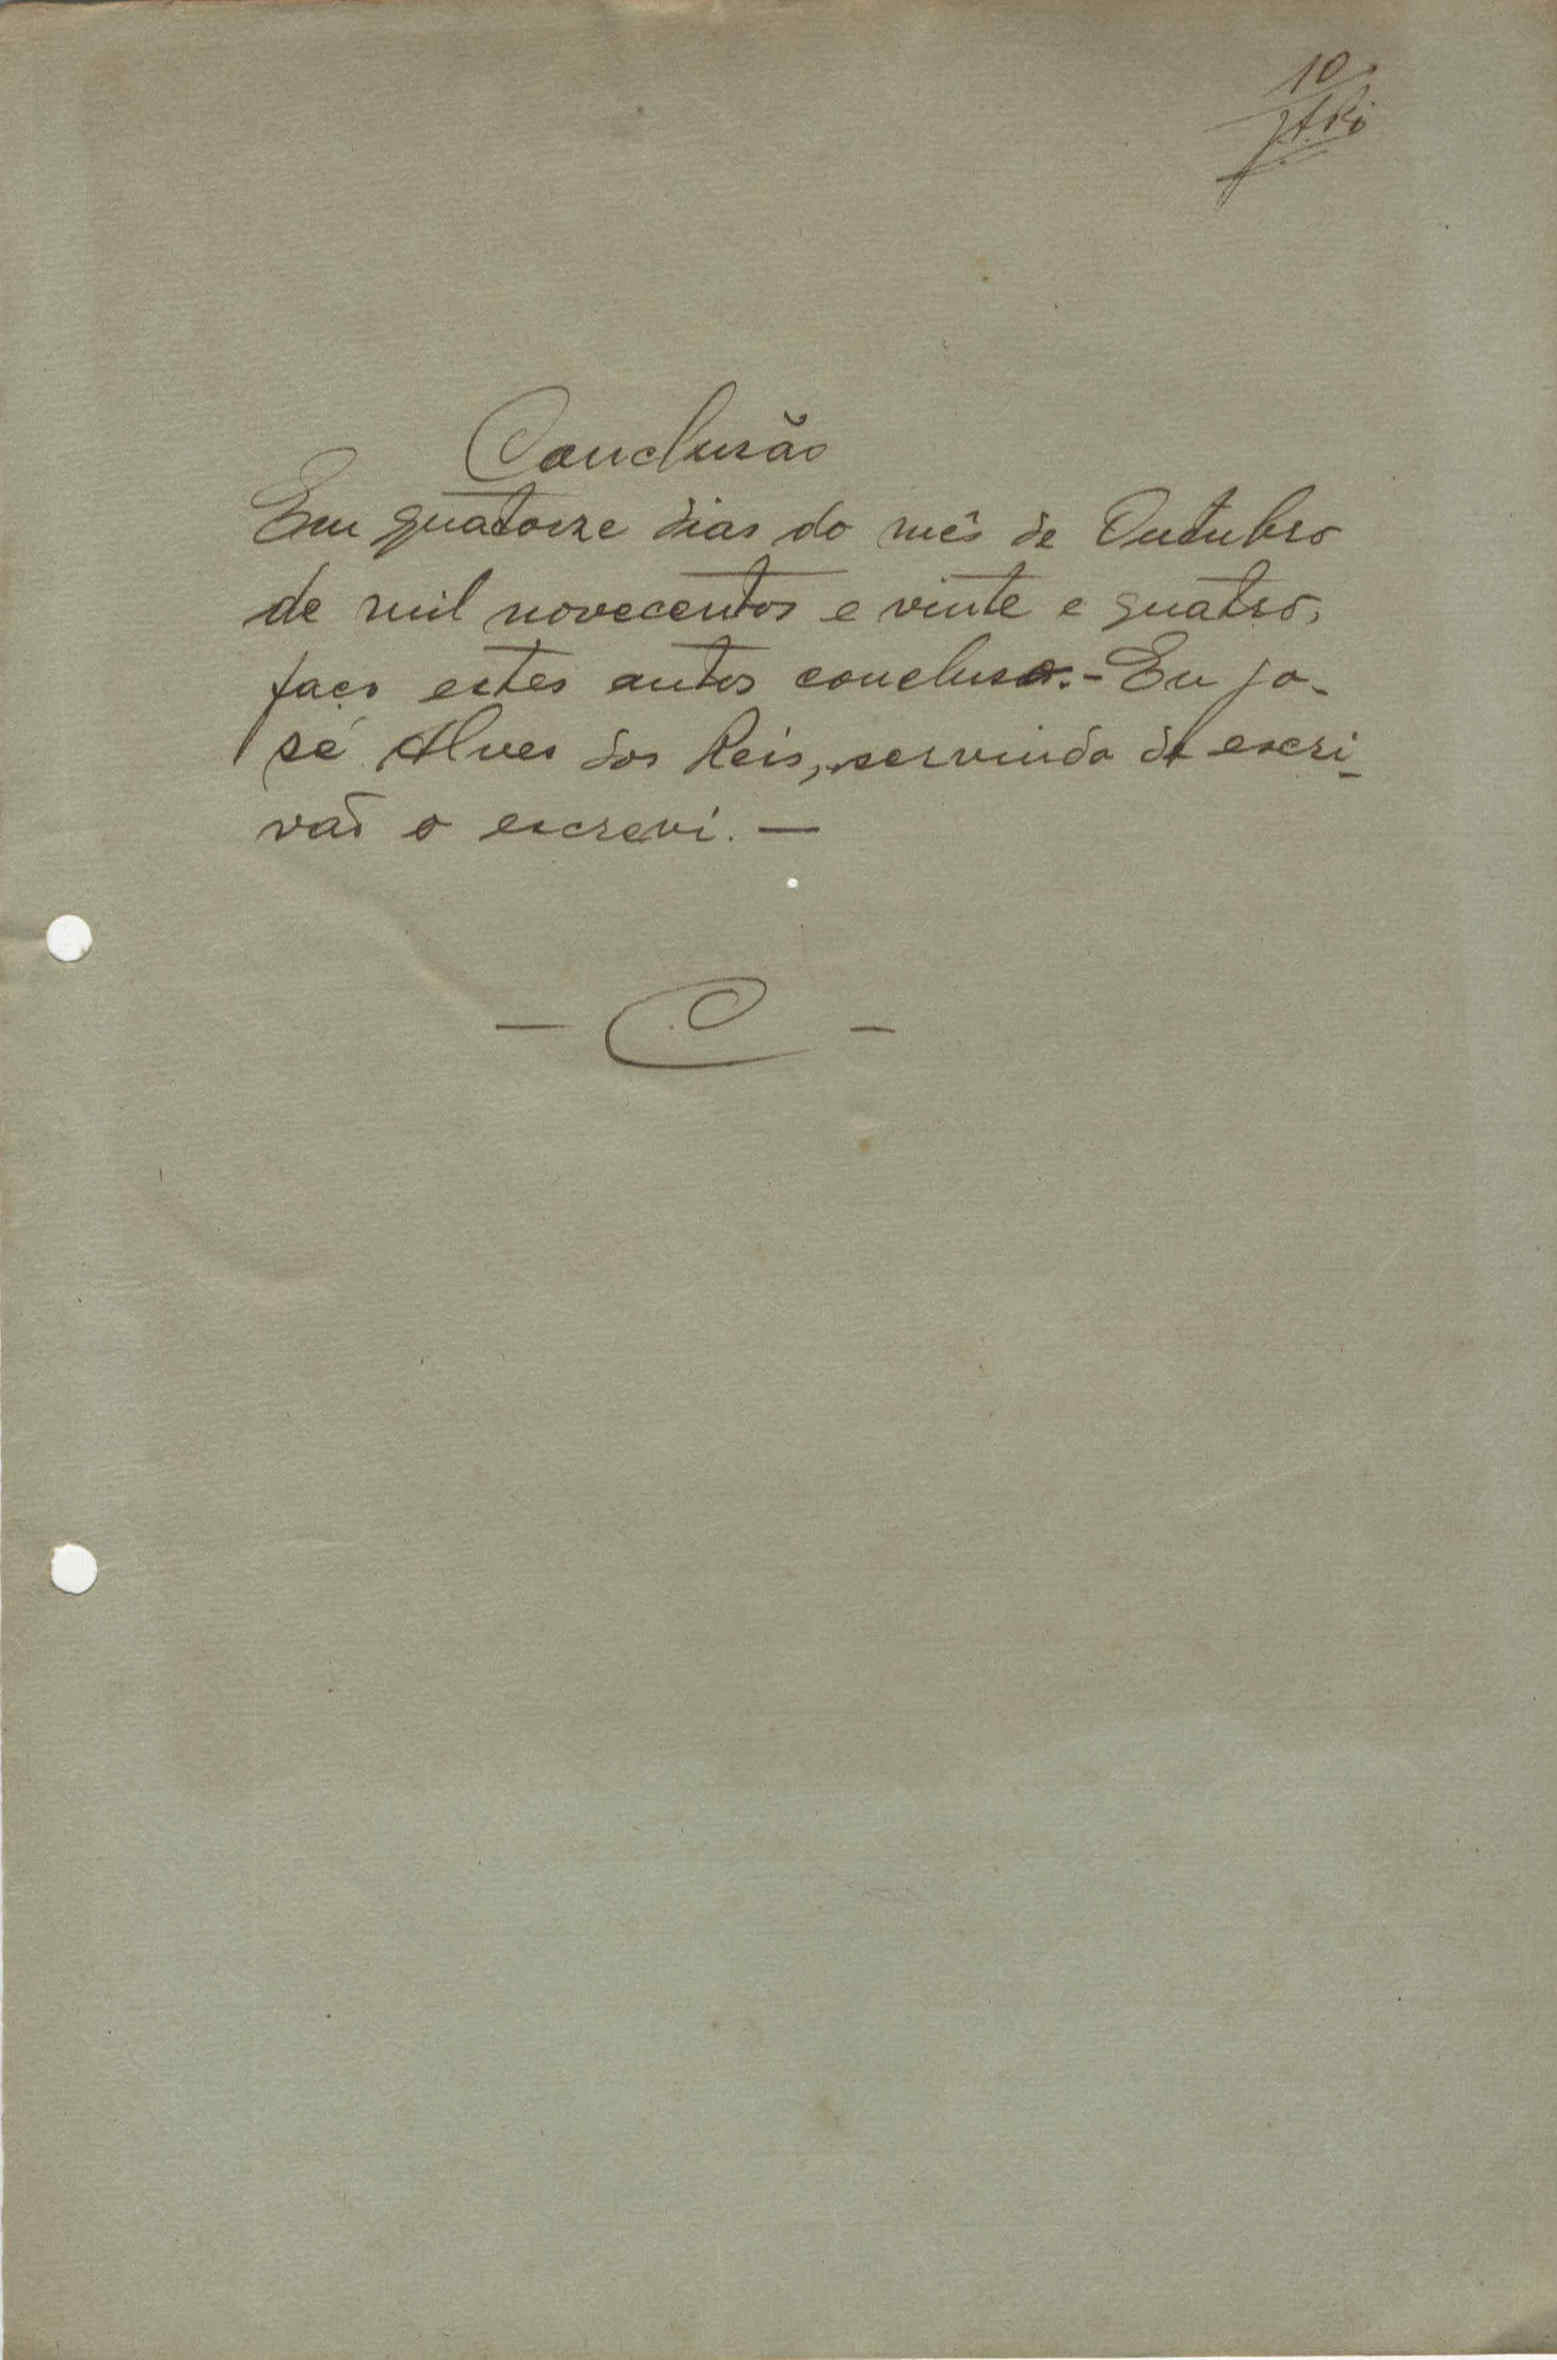 10
Conclusão
Em quatorze dias do mês de Outubro
de mil novecentos e vinte e quatro,
faço estes autos conclusos.- Eu Jo-
sé Alves dos Reis, servindo de escri-
vão o escrevi. —
- C -